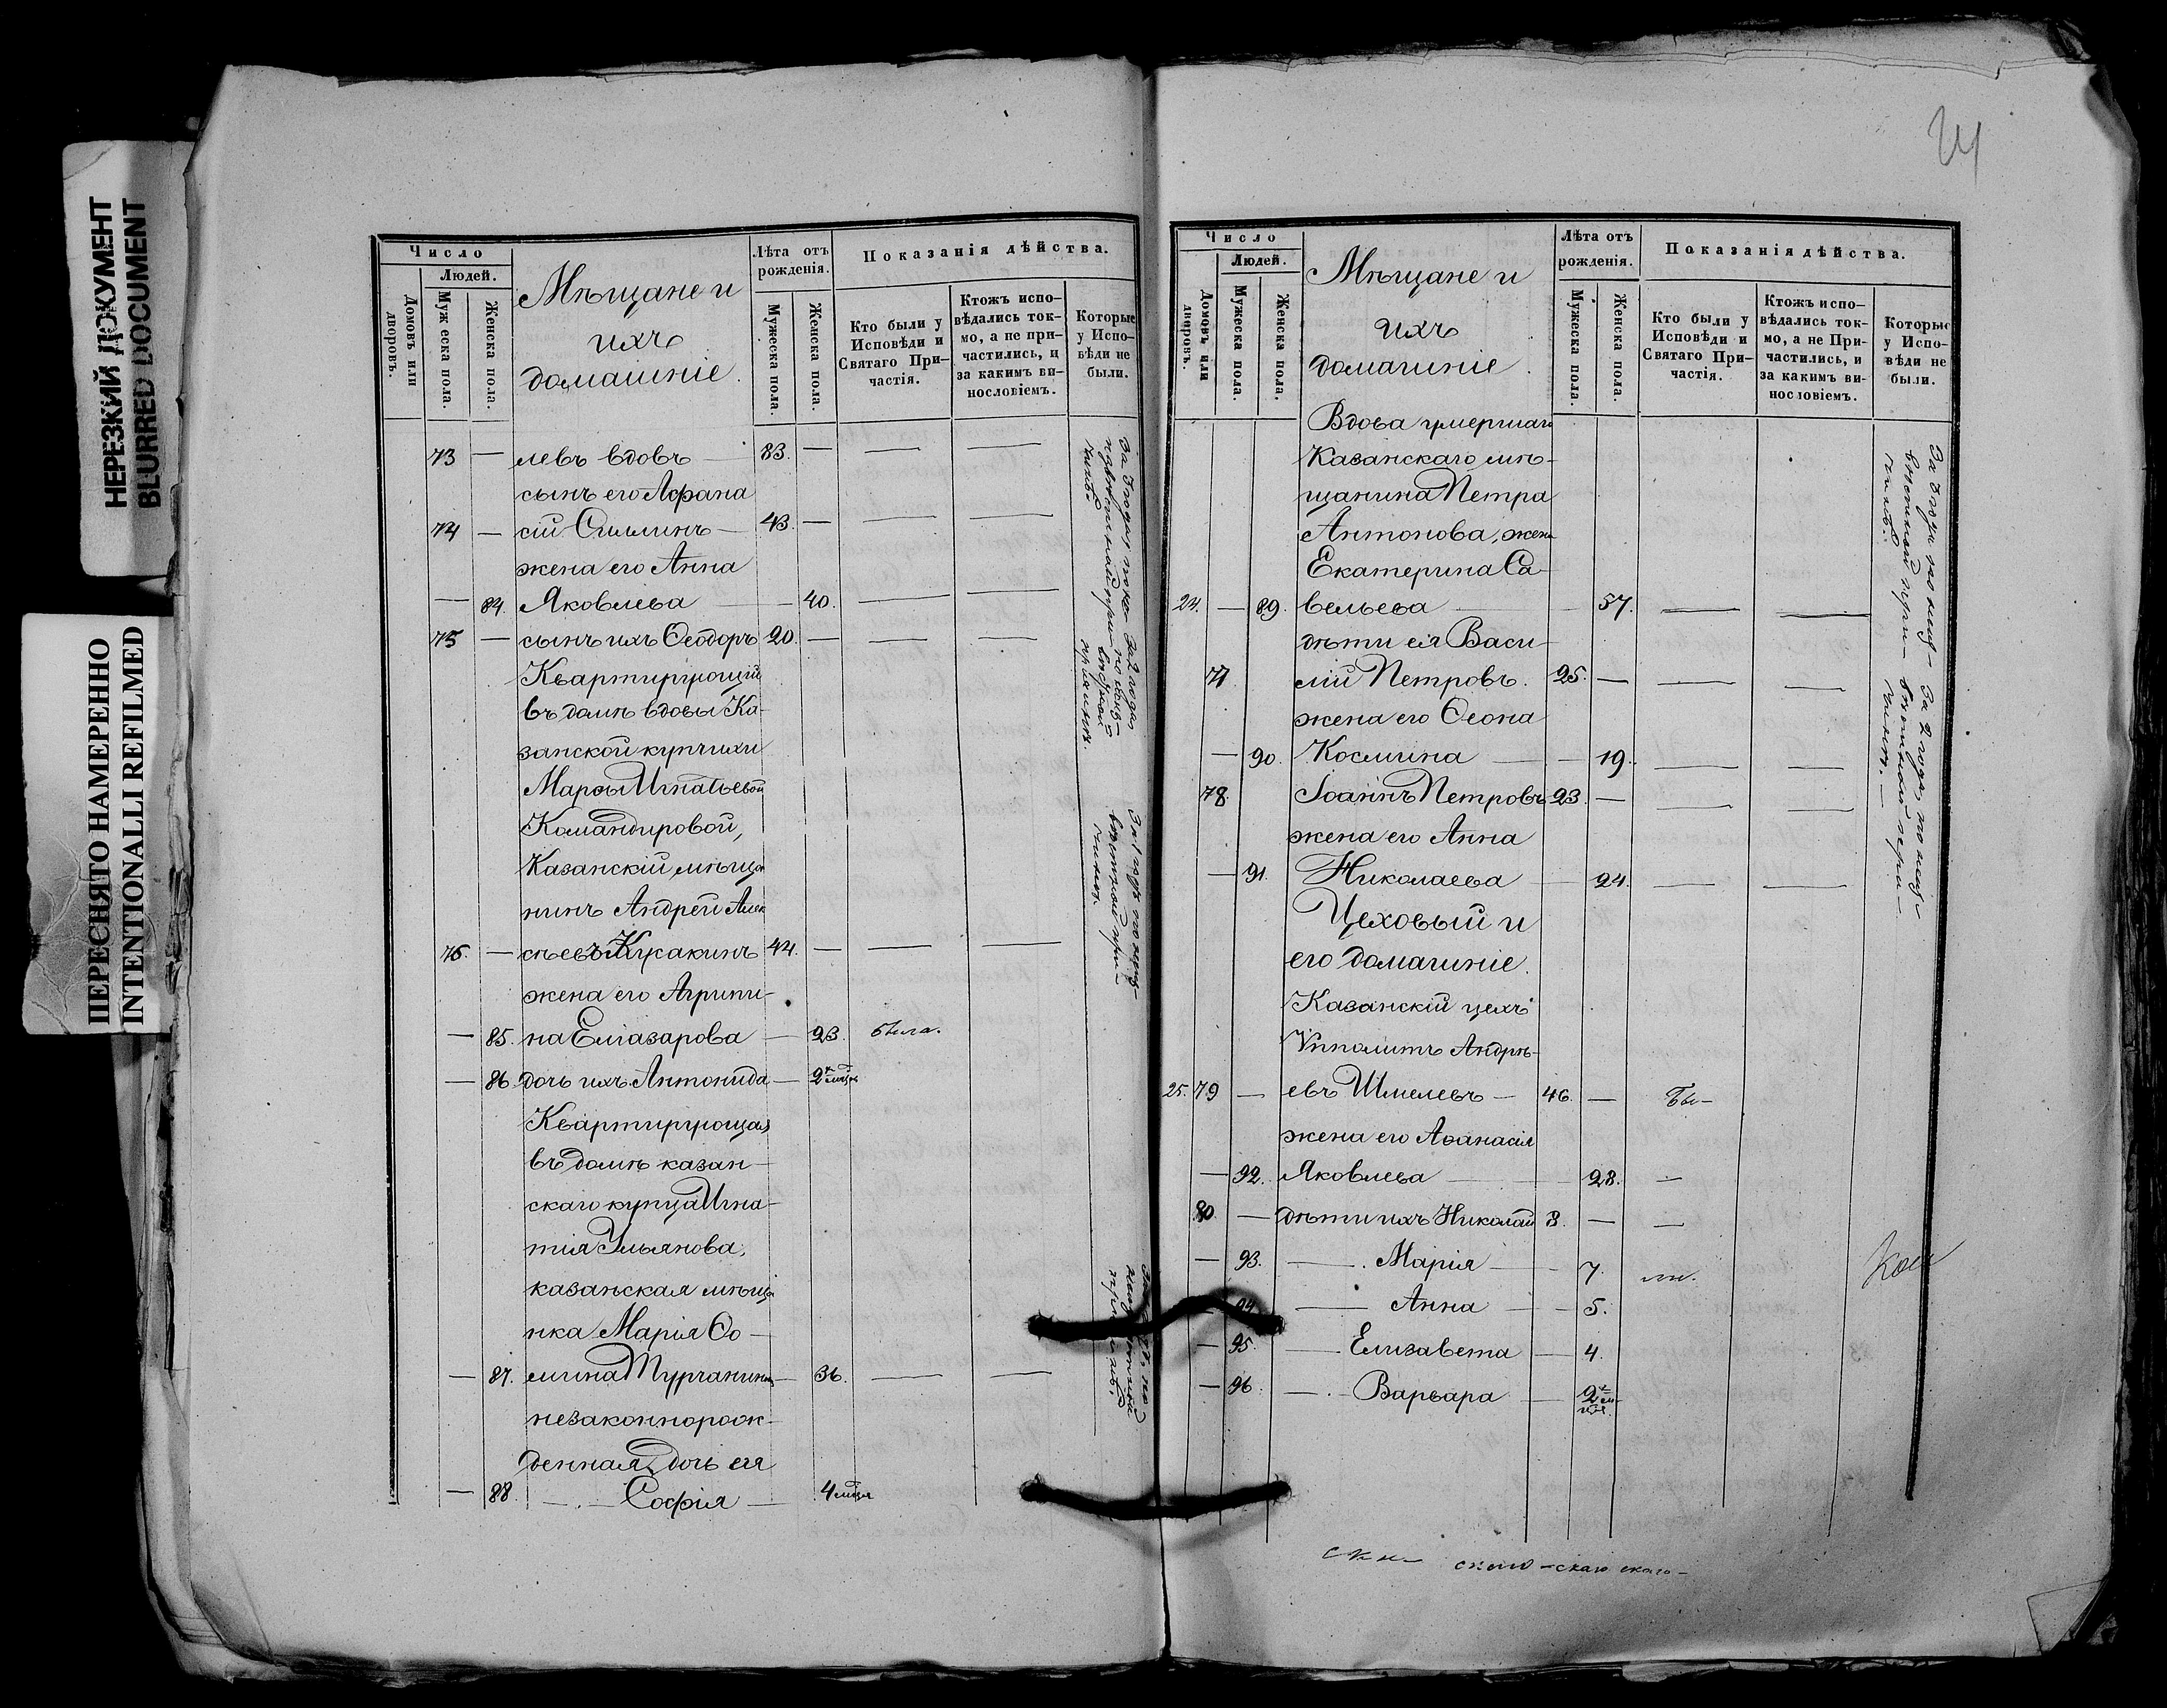 НЕРЕЗКИЙ ДОКУМЕНТ
BLURRED DOCUMENT
ПЕРЕСНЯТО НАМЕРЕННО
INTENTIONALLI REFILMED
Число
Людей.
Домовъ или дворовъ.
Мужеска пола.
Женска пола.
Мѣщане и
ихъ
домашніе.
Лѣта отъ рожденія.
Мужеска пола.
Женска пола.
Показанія дѣйства.
Кто были у Исповѣди и Святаго Причастія.
Ктожъ исповѣдались токмо, а не причастились, и за какимъ винословіемъ.
Которые у Исповѣди не были.
73 — левъ вдовъ — 83. — — —
сынъ его Афана
74 — сій Симинъ — 43. — — —
жена его Анна
— 84. Яковлева — — 40. — —
75 — сынъ ихъ Ѳеодоръ 20. — — —
Квартирующій
въ домѣ вдовы Ка-
занской купчихи
Марѳы Игнатьевой
Командировой,
Казанскій мѣща
нинъ Андрей Алек
76. — сѣевъ Куракинъ 44. — — —
жена его Агрипи-
— 85. на Елiазарова — 23. была.
— 86 дочь ихъ Антонида — 2
Квартирующая
въ домѣ казан-
скаго купца Игна-
тія Ульянова,
казанская мѣща
нка Марія Ѳо-
— 87. мина Турчанина — 36. — —
незаконнорож-
денная дочь ея
— 88. — . — Софія — 4 мѣця
24
Число
Людей.
Домовъ или дворовъ.
Мужеска пола.
Женска пола.
Мѣщане и
ихъ
домашніе.
Лѣта отъ рожденія.
Мужеска пола.
Женска пола.
Показанія дѣйства.
Кто были у Исповѣди и Святаго Причастія.
Ктожъ исповѣдались токмо, а не Причастились, и за какимъ винословіемъ.
Которые у Исповѣди не были.
Вдова умершаго
Казанскаго мѣ-
щанина Петра
Антонова, жена
Екатерина Са-
24. — 89. вельева — — 57. — —
дѣти ея Васи-
77. лій Петровъ. 25. — — —
жена его Ѳеона
— 90. Космина — — 19. — —
78. Іоаннъ Петровъ 23. — — —
жена его Анна
— 91. Николаева — 24. — —
Цеховый и
его домашніе.
Казанскій цехъ
Ѵпполитъ Андрѣ-
25. 79 — евъ Шмелевъ — 46. — Бы-
жена его Аѳанасія
— 92. Яковлева — — 28. —
80. — дѣти ихъ Николай 8. — —
— 93. — . Марія — - 7. ли.
94 — Анна — - 5.
— 95. — Елизавета — 4.
— 96. — . — Варвара — 2
скаго -скаго скаго-